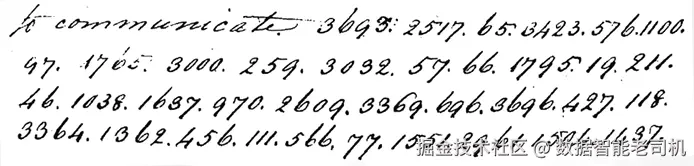 to communicate. 3693. 2517. 65. 3423. 576. 1100.
97. 1765. 3000. 259. 3032. 57. 66. 1795. 19. 211.
46. 1038. 1637. 970. 2609. 3369. 696. 3696. 427. 118.
3364. 1362. 456. 111. 566. 77. 1551. 1437.
掘金技术社区 @ 数据智能老司机